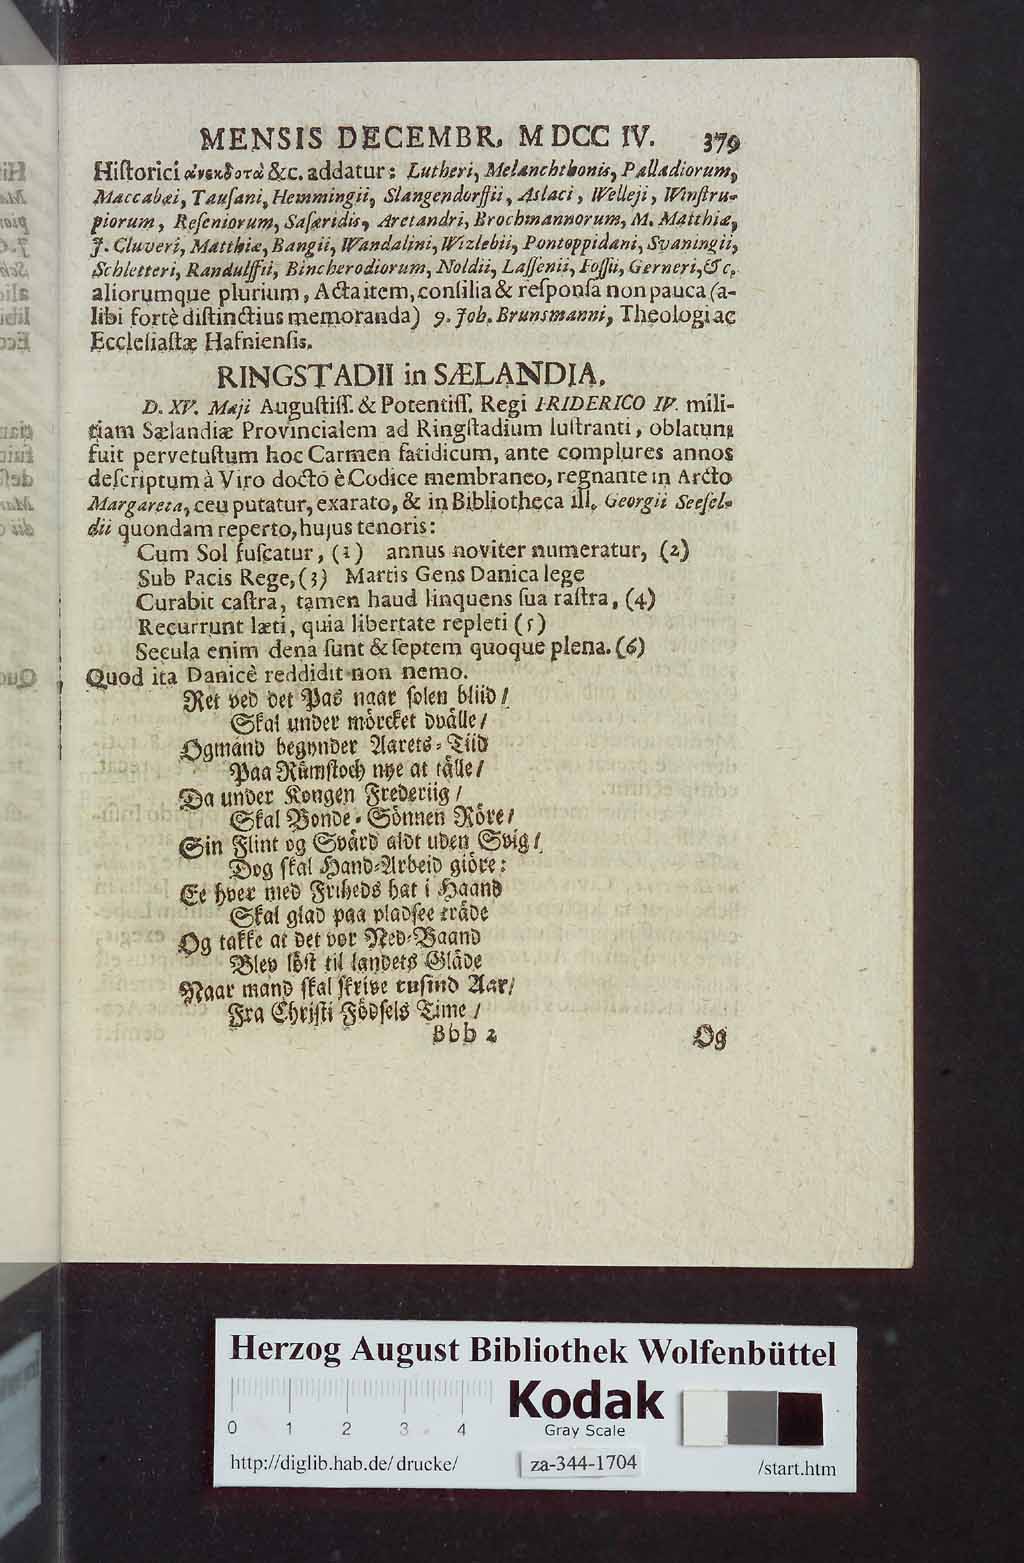 MENSIS DECEMBR. MDCC IV. 379
Hiſtorici ἀνεκδοτά &c. addatur: Lutheri, Melanchthonis, Palladiorum,
Maccabæi, Tauſani, Hemmingii, Slangendorffii, Aslaci, Welleji, Winſtru-
piorum, Reſeniorum, Saſæridis, Aretandri, Brochmannorum, M. Matthiæ,
J. Cluveri, Matthiæ, Bangii, Wandalini, Wizlebii, Pontoppidani, Svaningii,
Schletteri, Randulffii, Bincherodiorum, Noldii, Laſſenii, Foſſii, Gerneri, &c.
aliorumque plurium, Acta item, conſilia & reſponſa non pauca (a-
libi fortè diſtinctius memoranda) 9. Joh. Brunsmanni, Theologi ac
Eccleſiaſtæ Hafnienſis.
RINGSTADII in SÆLANDIA.
D. XV. Maji Auguſtiſſ. & Potentiſſ. Regi FRIDERICO IV. mili-
tiam Sælandiæ Provincialem ad Ringſtadium luſtranti, oblatum
fuit pervetuſtum hoc Carmen fatidicum, ante complures annos
deſcriptum à Viro docto è Codice membraneo, regnante in Arcto
Margareta, ceu putatur, exarato, & in Bibliotheca ill. Georgii Seefel-
dii quondam reperto, hujus tenoris:
Cum Sol fuſcatur, (1) annus noviter numeratur, (2)
Sub Pacis Rege, (3) Martis Gens Danica lege
Curabit caſtra, tamen haud linquens ſua raſtra, (4)
Recurrunt læti, quia libertate repleti (5)
Secula enim dena ſunt & ſeptem quoque plena. (6)
Quod ita Danicè reddidit non nemo.
Ret ved det Pas naar ſolen bliid/
Skal under mörcket dvälle/
Ogmand begynder Aarets-Tiid
Paa Rümſtoch nye at tälle/
Da under Kongen Frederiig/
Skal Bonde-Sönnen Röre/
Sin Flint og Svärd aldt uden Svig/
Dog ſkal Hand-Arbeid giöre:
Ee hver med Friheds hat i Haand
Skal glad paa pladſee träde
Og takke at det vor Ned-Baand
Blev löſt til landets Gläde
Naar mand ſkal ſkrive tuſind Aar/
Fra Chriſti Födſels Time/
Bbb 2 Og
Herzog August Bibliothek Wolfenbüttel
0 1 2 3 4
Kodak
Gray Scale
http://diglib.hab.de/drucke/ za-344-1704 /start.htm